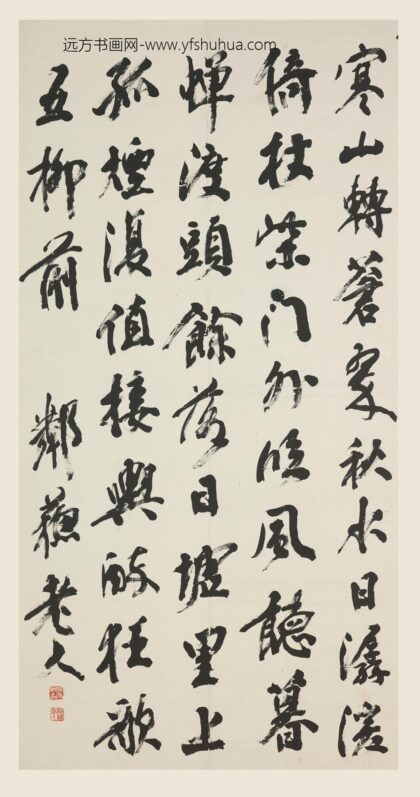 远方书画网-www.yfshuhua.com
寒山轉蒼翠秋水日潺湲
倚杖柴门外臨風聽暮
蟬渡頭餘落日墟里上
孤煙復值接輿醉狂歌
五柳前 鄰蘇老人